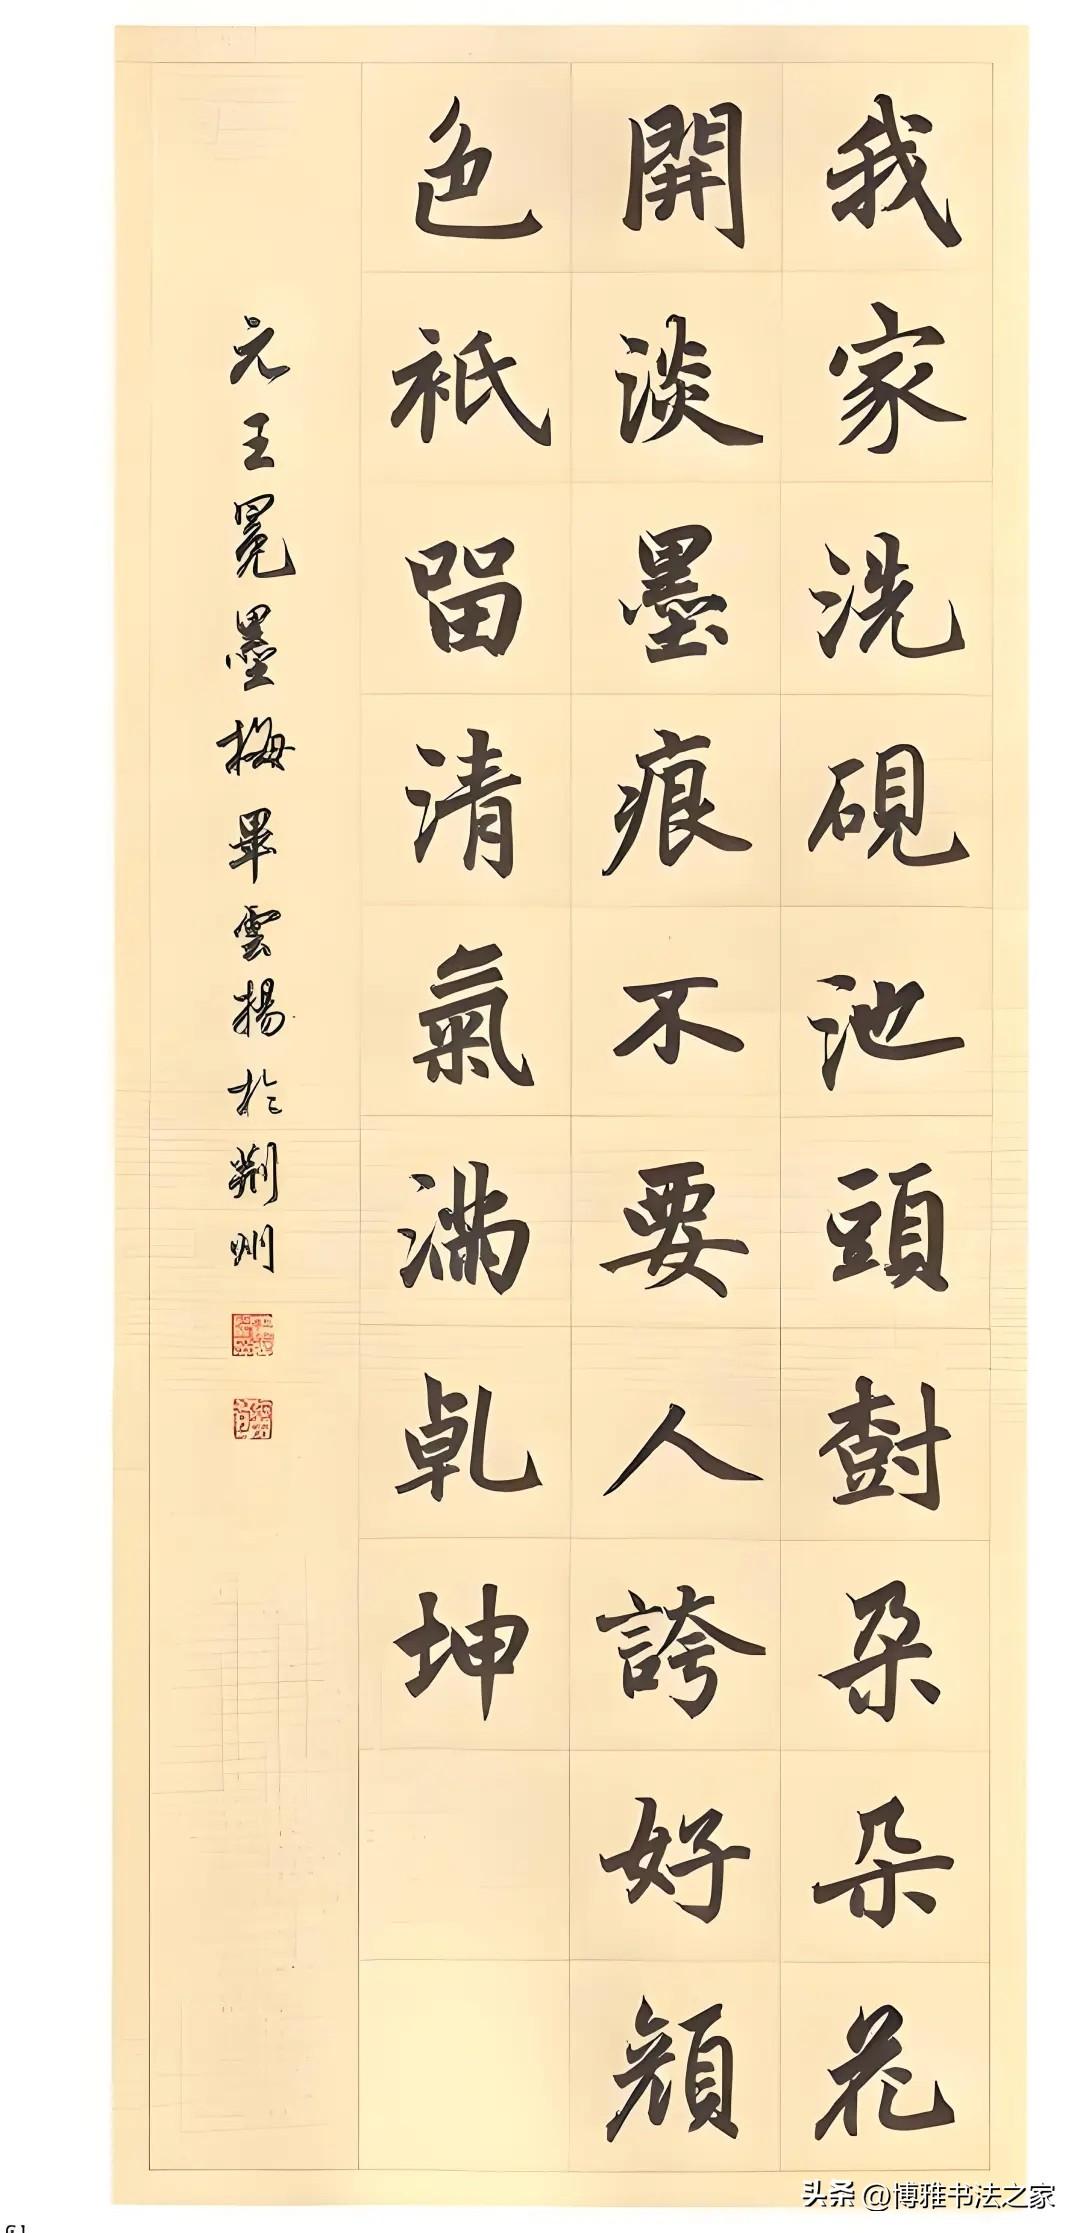 我家洗硯池頭樹朶朶花
開淡墨痕不要人誇好顔
色衹留清氣滿乾坤
元王冕墨梅畢雲揚於荆州
头条 @博雅书法之家